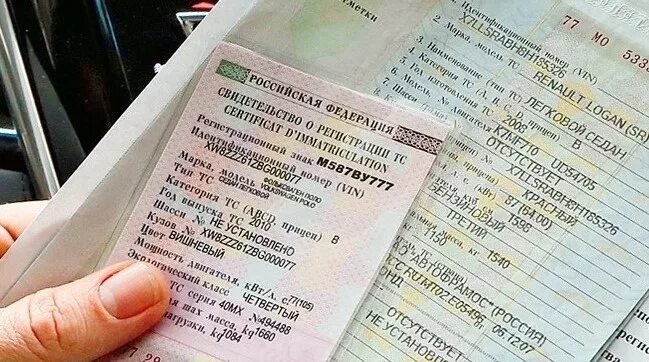 РОССИЙСКАЯ ФЕДЕРАЦИЯ
СВИДЕТЕЛЬСТВО О РЕГИСТРАЦИИ ТС
CERTIFICAT D'IMMATRICULATION
Регистрационный знак М567ВУ777
Идентификационный номер (VIN)
XW8ZZZ61ZBG000077
Марка, модель ФОЛЬКСВАГЕН ПОЛО
VOLKSWAGEN POLO
Тип ТС СЕДАН ЛЕГКОВОЙ
Категория ТС (ABCD, прицеп) B
Год выпуска ТС 2010
Шасси № НЕ УСТАНОВЛЕНО
Кузов № XW8ZZZ61ZBG000077
Цвет ВИШНЕВЫЙ
Мощность двигателя, кВт/л. с. 77(105)
Экологический класс ЧЕТВЕРТЫЙ
ТС серия 40МХ № 494488
max масса, kg 1660
нагрузки, kg 1084
77 МО 533
1. Идентификационный номер (VIN)
X7LLSRABH8H185326
2. Марка, модель ТС RENAULT LOGAN (SR)
3. Наименование (тип ТС) ЛЕГКОВОЙ СЕДАН
4. Категория ТС (А, В, С, D, прицеп) В
5. Год изготовения ТС 2008
6. K7MF710 UD54705
7. Шасси ОТСУТСТВУЕТ
X7LLSRABH8H185326
КРАСНЫЙ
87 (64.00)
1598
БЕНЗИНОВЫЙ
ТРЕТИЙ
масса, кг 1540
АВТОФРАМОС" (РОССИЯ)
ОТСУТСТВУЕТ
НЕ УСТАНОВЛЕНЫ